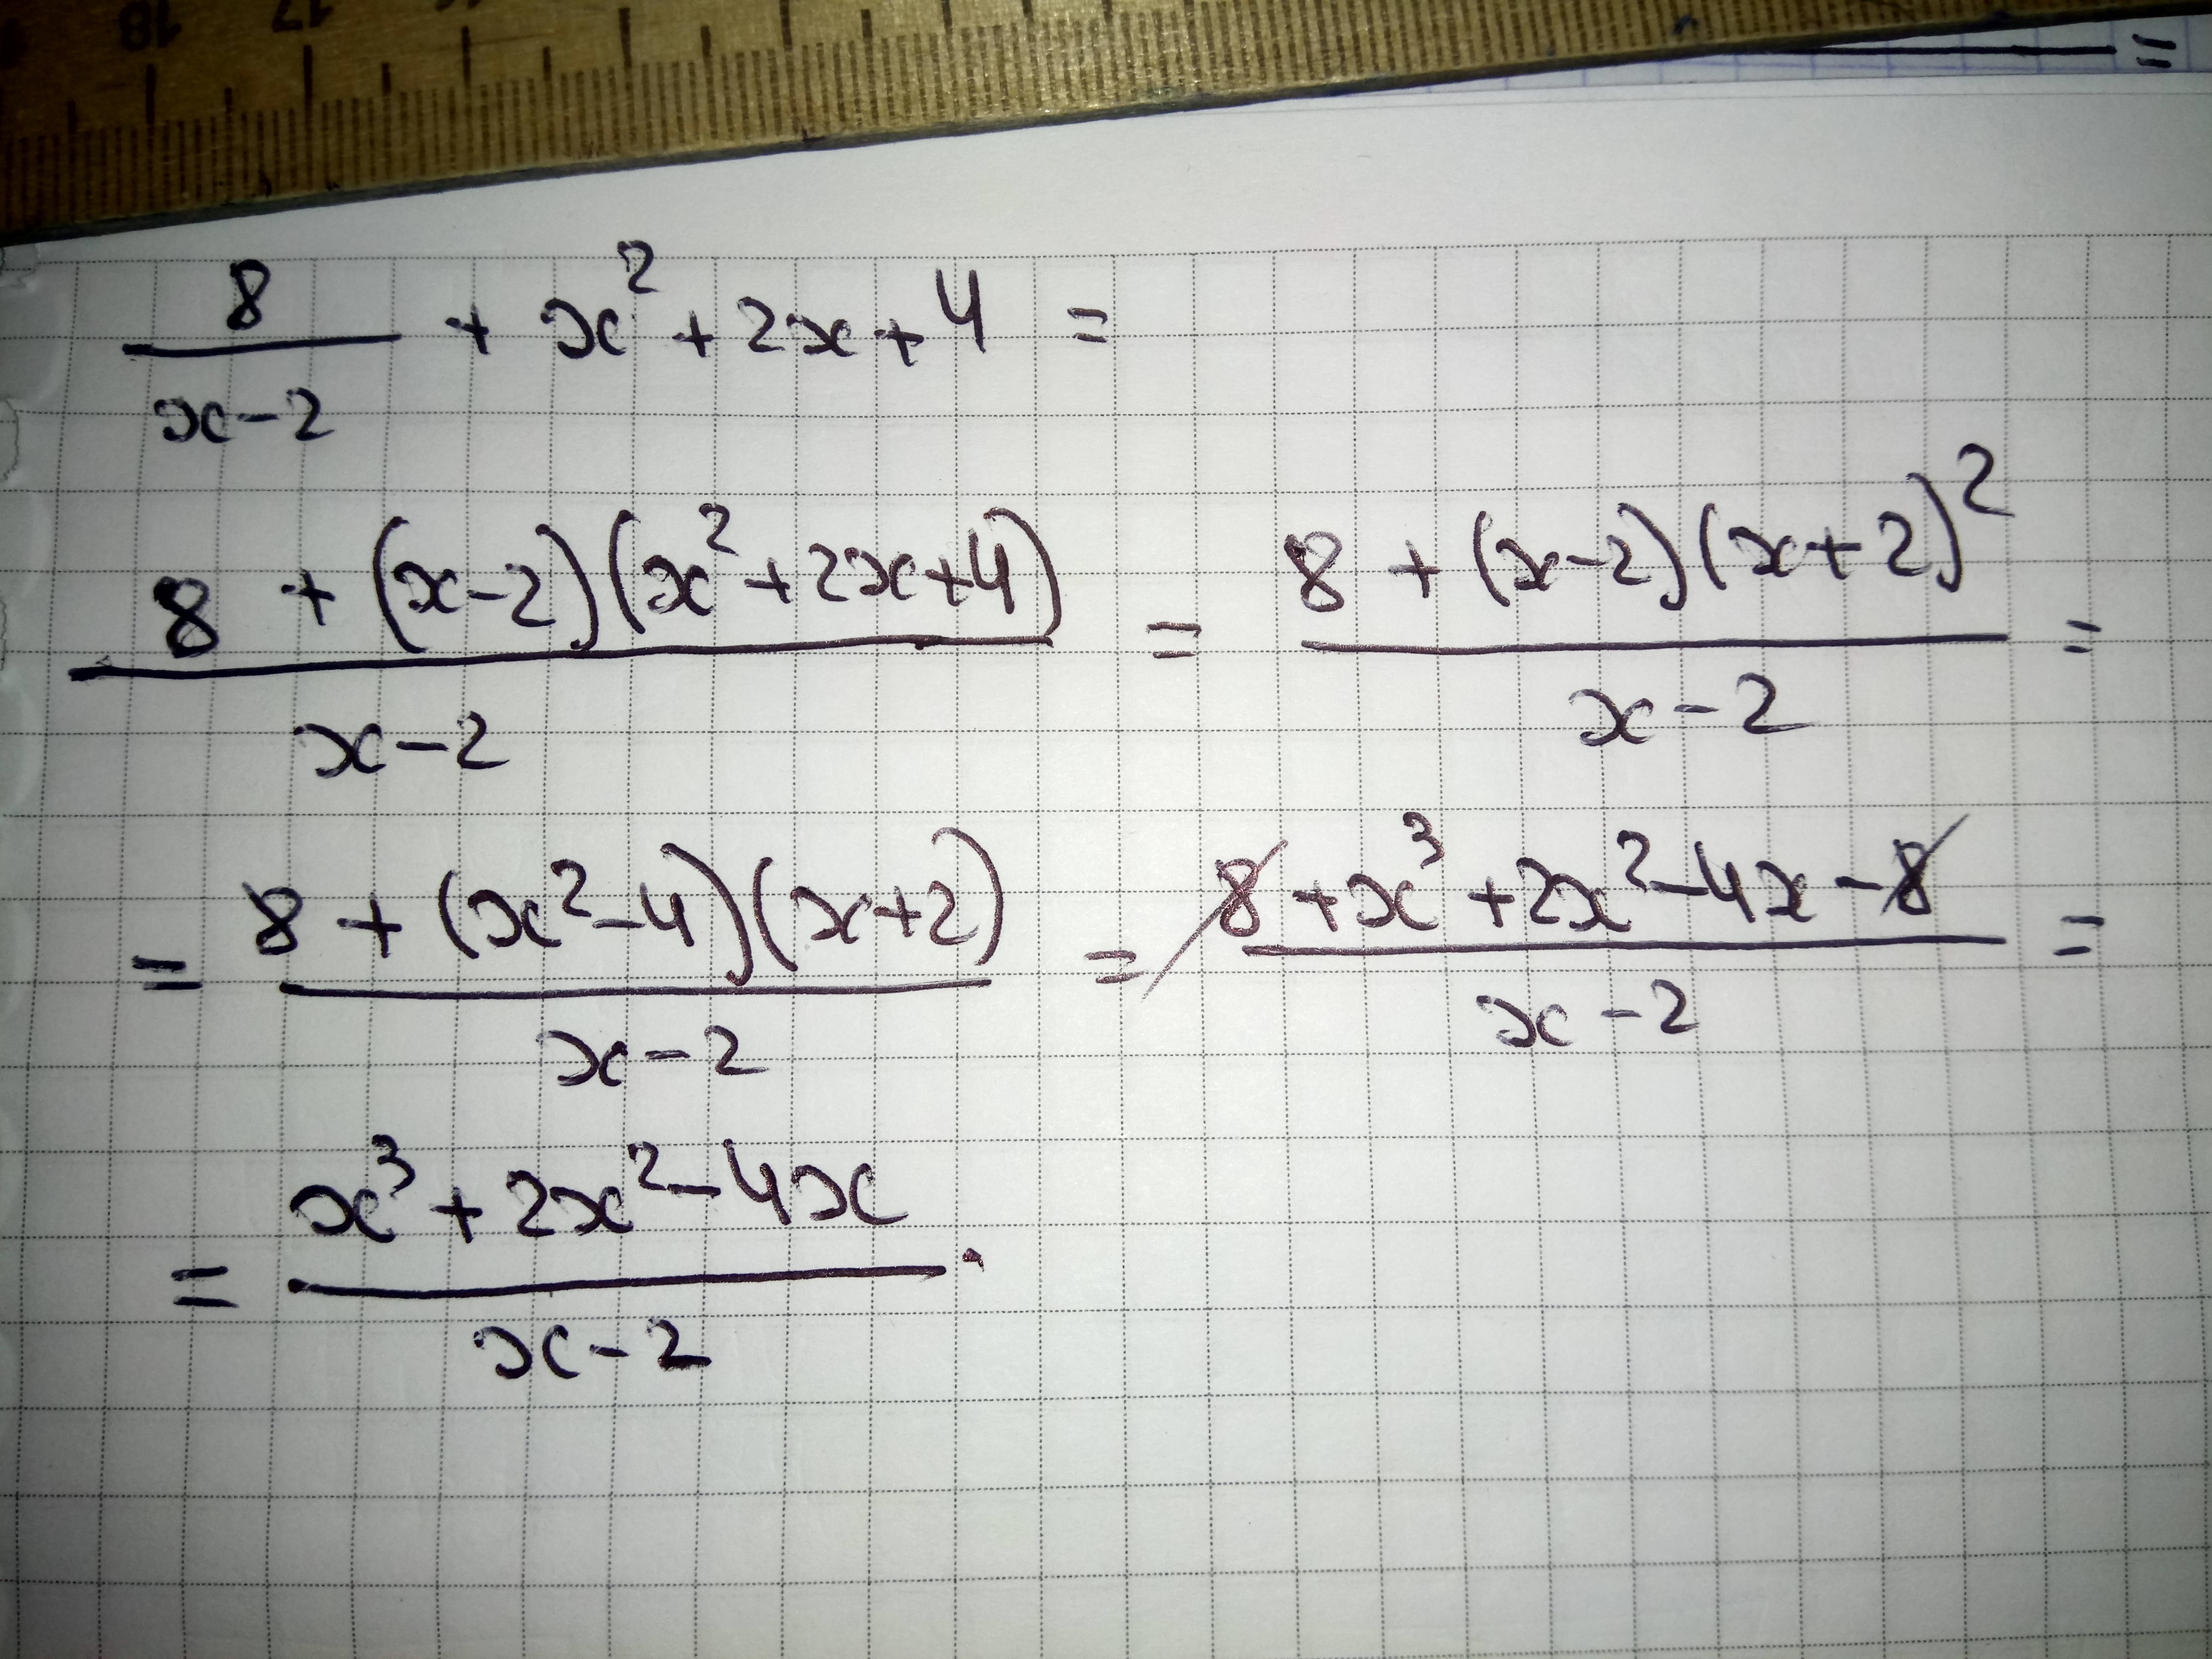 18 17
=
8/(x-2) + x² + 2x + 4 =
(8 + (x-2)(x² + 2x + 4))/(x-2) = (8 + (x-2)(x+2)²)/(x-2) =
= (8 + (x² - 4)(x+2))/(x-2) = (8 + x³ + 2x² - 4x - 8)/(x-2) =
= (x³ + 2x² - 4x)/(x-2) .